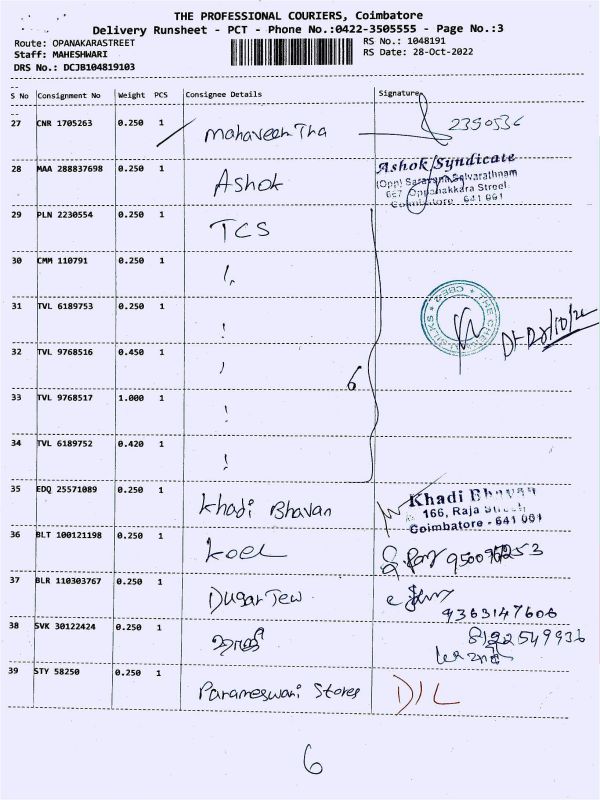 THE PROFESSIONAL COURIERS, Coimbatore
Delivery Runsheet - PCT - Phone No.:0422-3505555 - Page No.:3
Route: OPANAKARASTREET
Staff: MAHESHWARI
DRS No.: DCJB104819103
RS No.: 1048191
RS Date: 28-Oct-2022
S No Consignment No Weight PCS Consignee Details Signature
27 CNR 1705263 0.250 1 2350536
28 MAA 288837698 0.250 1 Ashok Ashok Syndicate
(Opp) Saravana Selvarathnam
667 Oppanakkara Street
Coimbatore 641 001
29 PLN 2230554 0.250 1 TCS
30 CMM 110791 0.250 1
31 TVL 6189753 0.250 1
32 TVL 9768516 0.450 1
6
33 TVL 9768517 1.000 1
34 TVL 6189752 0.420 1
35 EDQ 25571089 0.250 1 Khadi Bhavan Khadi Bhavan
166, Raja Street
Coimbatore - 641 001
36 BLT 100121198 0.250 1 Koel
37 BLR 110303767 0.250 1 Dugar Jew
9363147606
38 SVK 30122424 0.250 1 8122549936
39 STY 58250 0.250 1 Parameswari Stores D/L
6